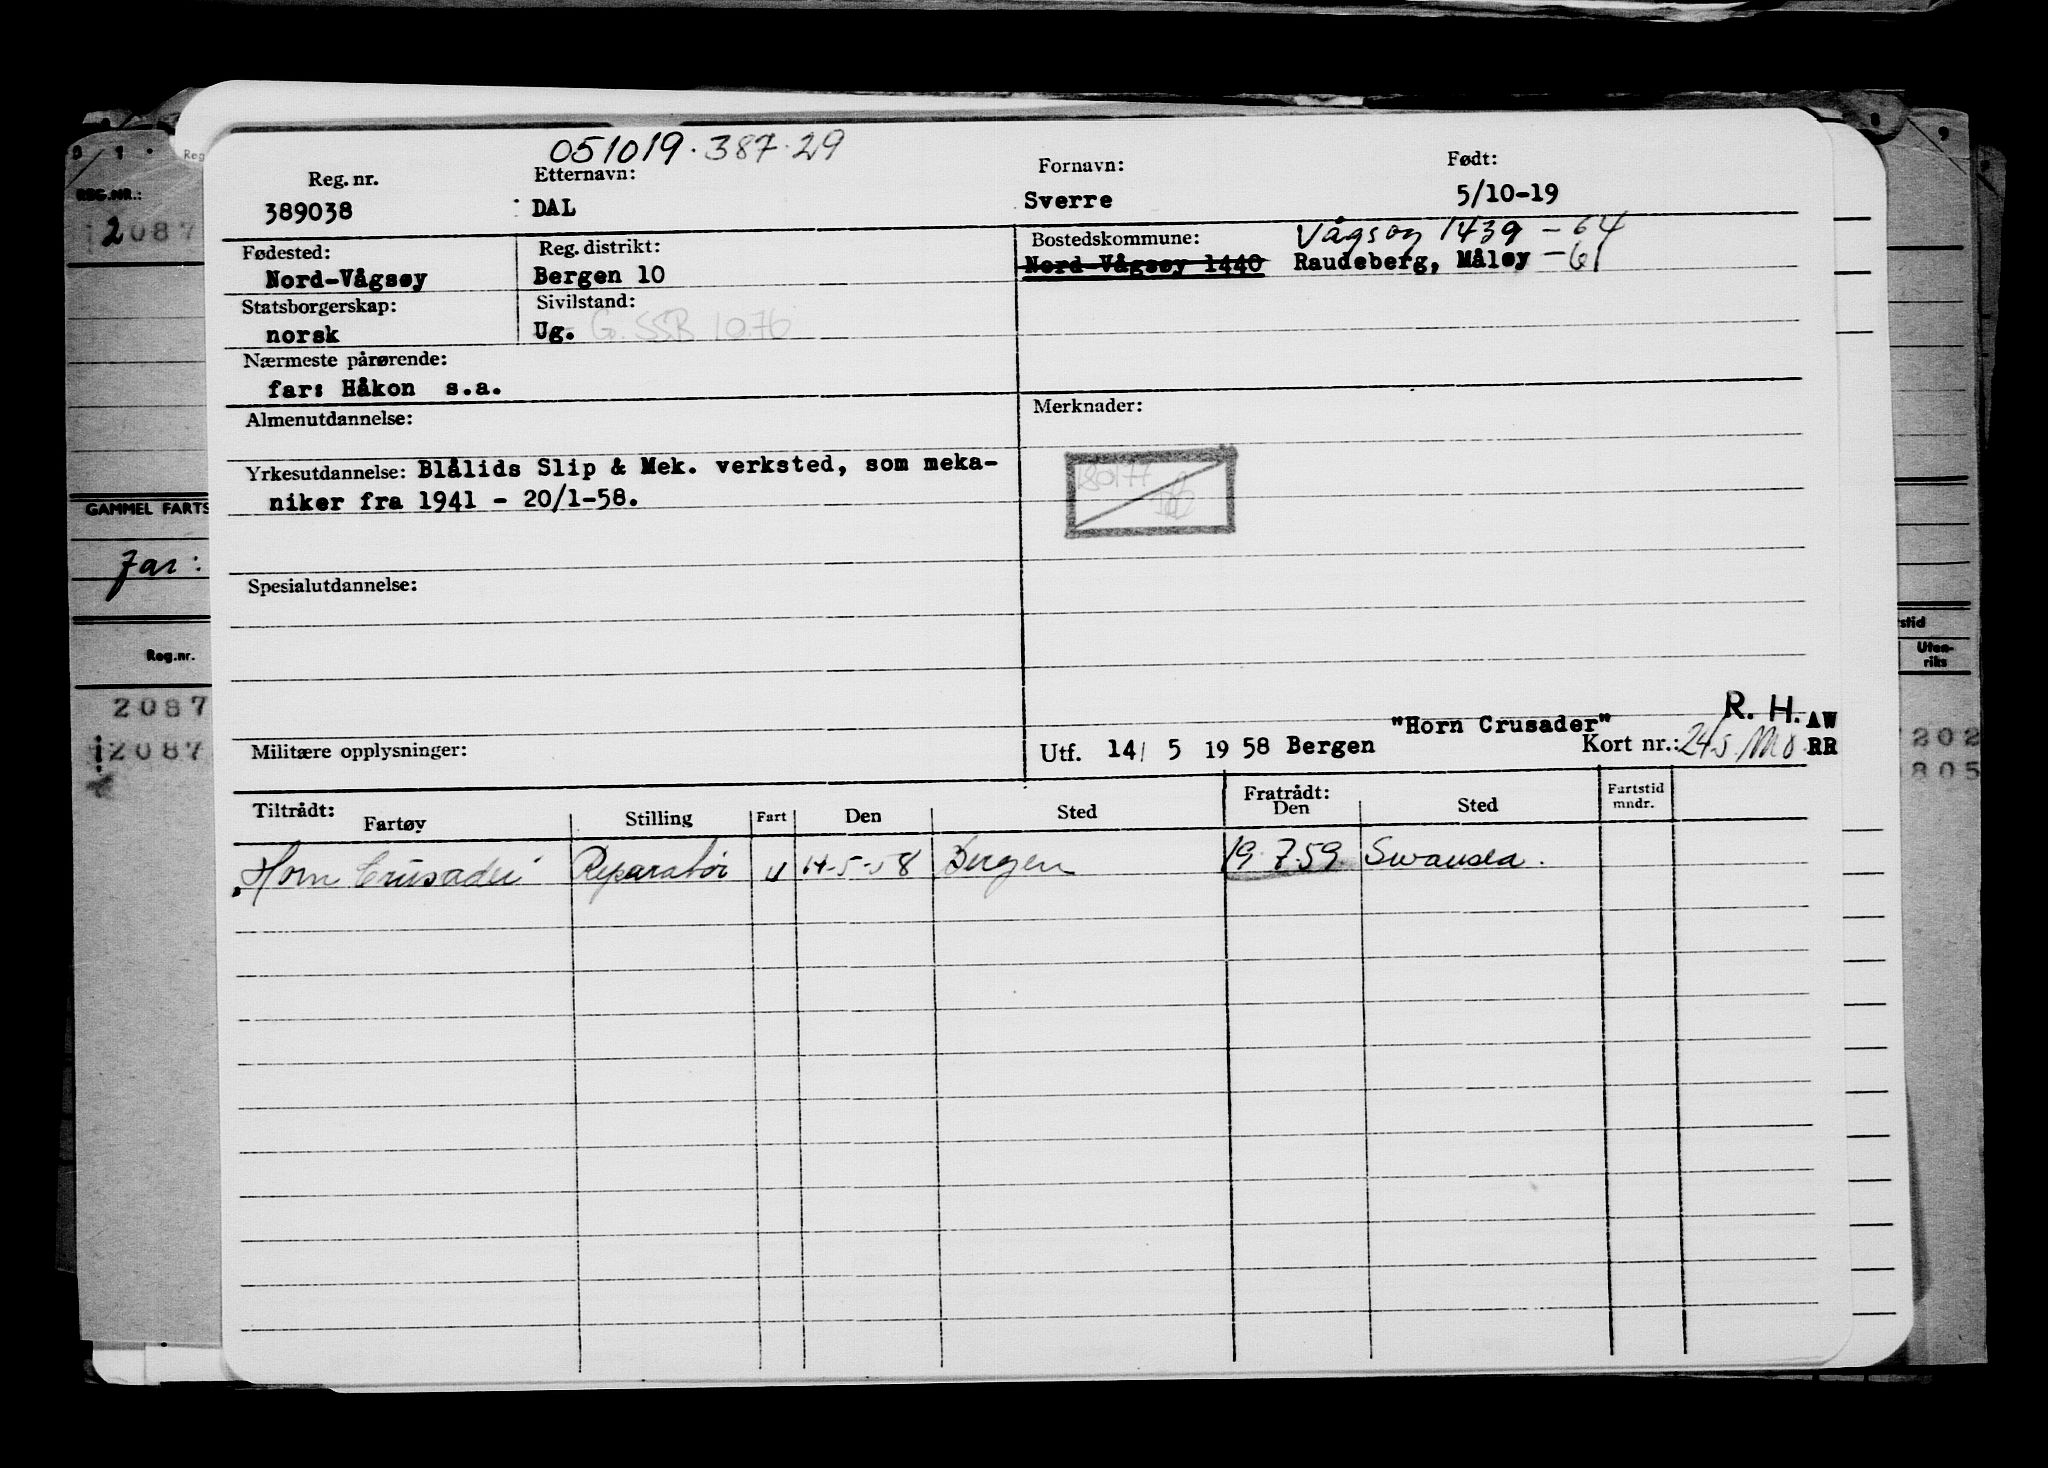 051019.387.29
Reg. nr. Etternavn: Fornavn: Født:
389038 DAL Sverre 5/10-19
Fødested: Reg. distrikt: Bostedskommune: Vågsøy 1439 - 64
Nord-Vågsøy Bergen 10 Nord-Vågsøy 1440 Raudeberg, Måløy - 61
Statsborgerskap: Sivilstand:
norsk Ug. G. SSB 1076
Nærmeste pårørende:
far: Håkon s.a.
Almenutdannelse: Merknader:
Yrkesutdannelse: Blålids Slip & Mek. verksted, som meka-
niker fra 1941 - 20/1-58.
180177
Spesialutdannelse:
R. H. AW
"Horn Crusader"
Militære opplysninger: Utf. 14/ 5 1958 Bergen Kort nr.: RR
Tiltrådt: Fratrådt: Fartstid
Fartøy Stilling Fart Den Sted Den Sted mndr.
"Horn Crusader" Reparatør U 14-5-58 Bergen 19.7.59. Swansea.
REG.NR.:
2087
GAMMEL FARTS
Far:
Reg.nr.
2087
2087
Reg
stid
Uten-
riks
202
805